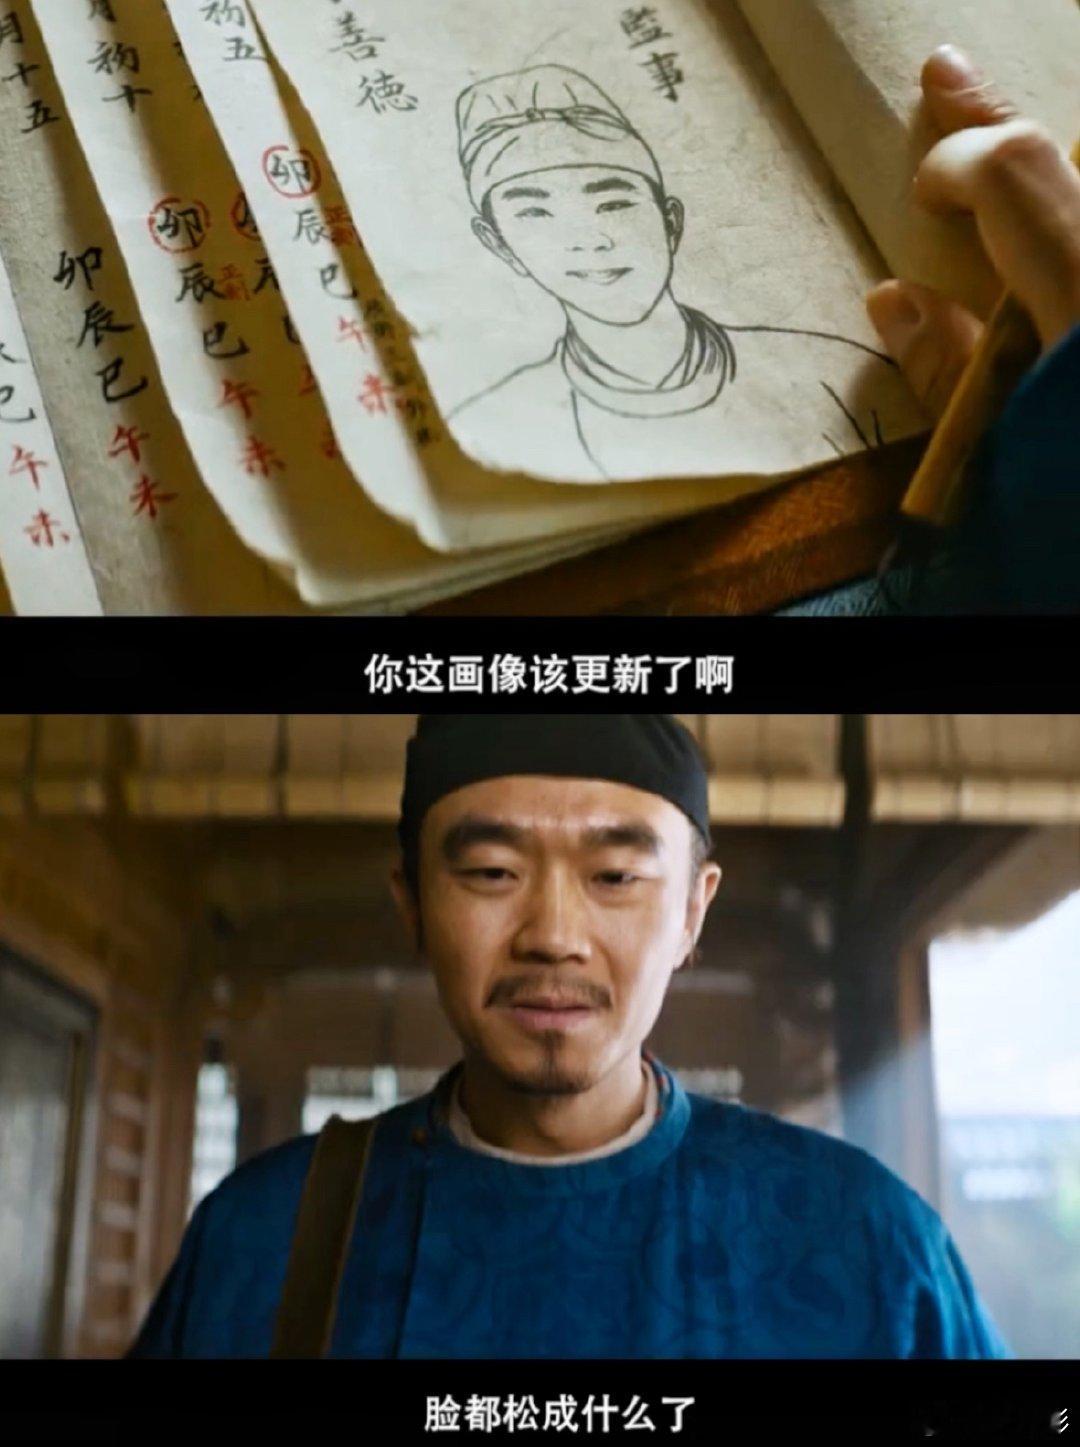 監事
善德
初五
卯
辰
巳
午
未
初十
卯
辰
巳
午
未
月十五
卯
辰
巳
午
未
巳
午
未
你这画像该更新了啊
脸都松成什么了